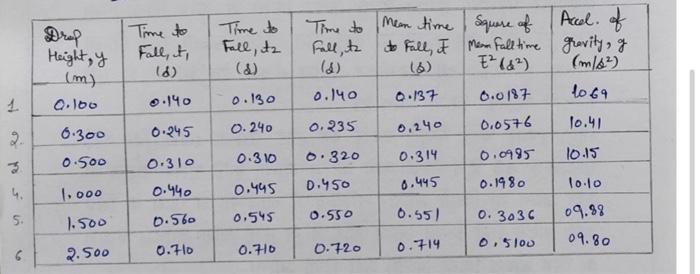 Drop Height, y (m) | Time to Fall, t1 (s) | Time to Fall, t2 (s) | Time to Fall, t2 (s) | Mean time to Fall, t̄ (s) | Square of Mean Fall time t̄² (s²) | Accel. of gravity, g (m/s²)
1. 0.100 | 0.140 | 0.130 | 0.140 | 0.137 | 0.0187 | 1069
2. 0.300 | 0.245 | 0.240 | 0.235 | 0.240 | 0.0576 | 10.41
3 0.500 | 0.310 | 0.310 | 0.320 | 0.314 | 0.0985 | 10.15
4. 1.000 | 0.440 | 0.445 | 0.450 | 0.445 | 0.1980 | 10.10
5. 1.500 | 0.560 | 0.545 | 0.550 | 0.551 | 0.3036 | 09.88
6 2.500 | 0.710 | 0.710 | 0.720 | 0.714 | 0.5100 | 09.80